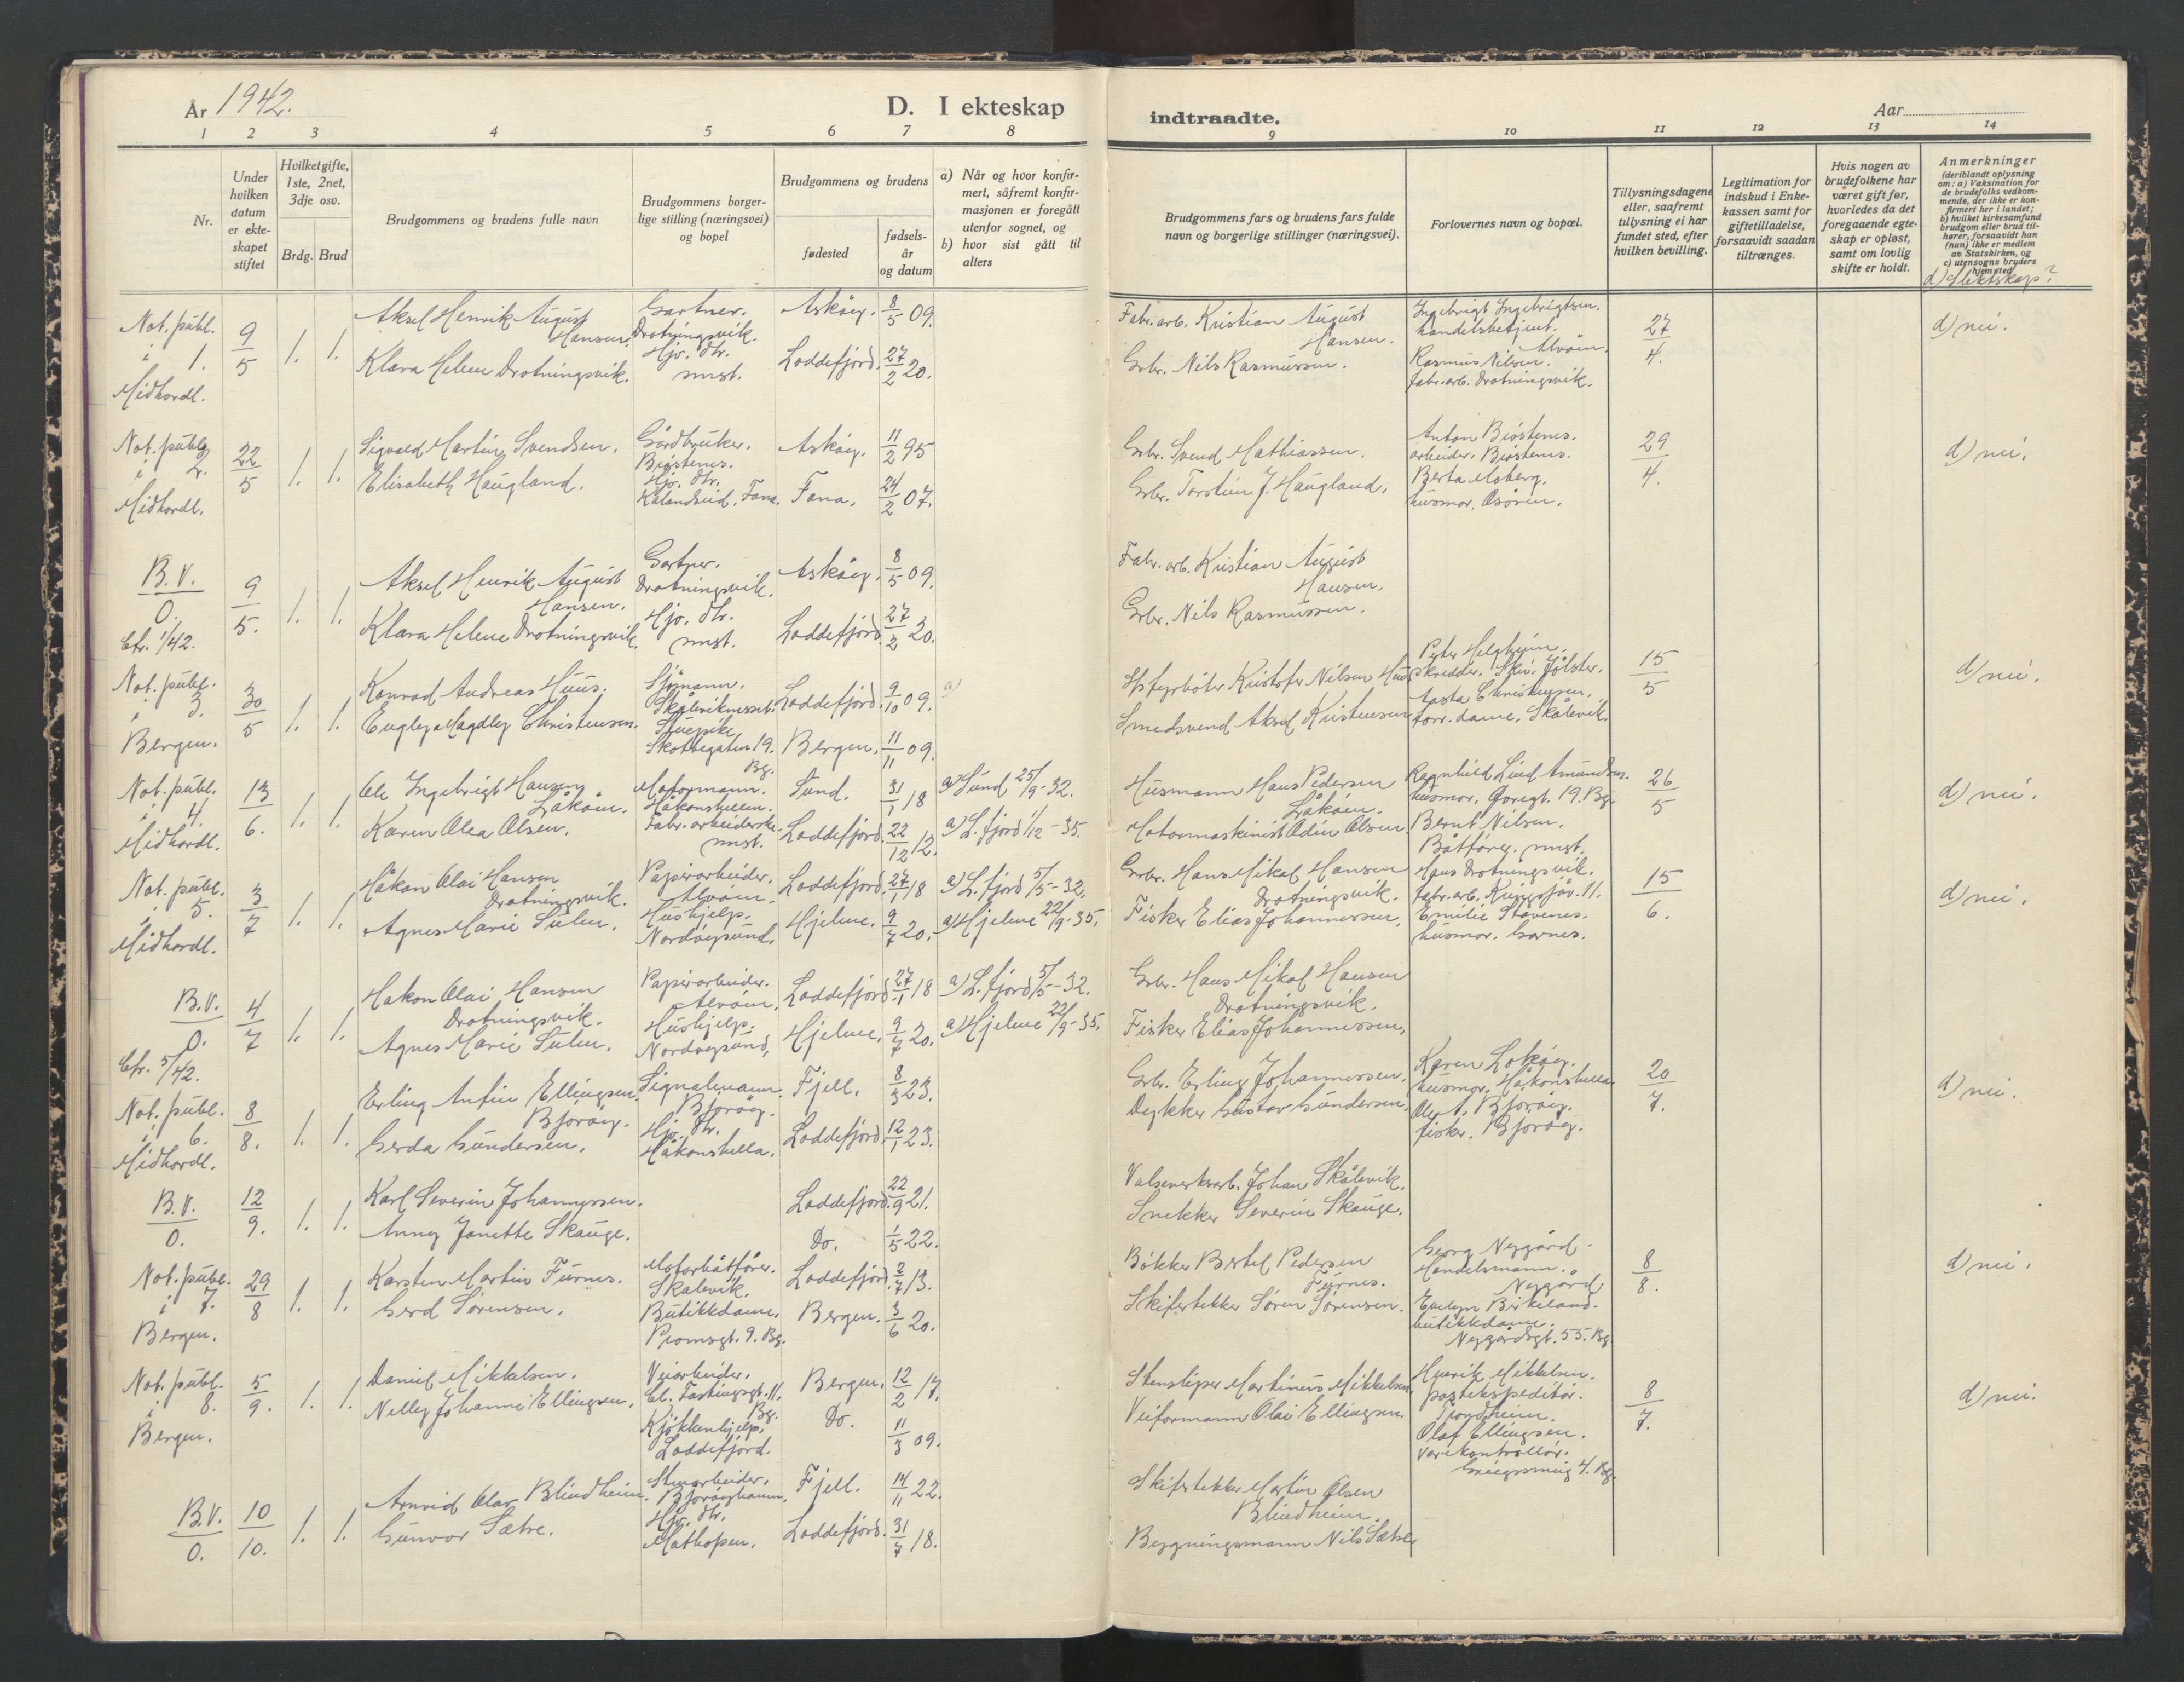 År 1942.
D. I ekteskap indtraadte.
Aar
1 2 3 4 5 6 7 8 9 10 11 12 13 14
Nr.
Under hvilken datum er ekteskapet stiftet
Hvilket gifte, 1ste, 2net, 3dje osv.
Brdg. Brud
Brudgommens og brudens fulle navn
Brudgommens borgerlige stilling (næringsvei) og bopel
Brudgommens og brudens
fødested
fødselsår og datum
a) Når og hvor konfirmert, såfremt konfirmasjonen er foregått utenfor sognet, og
b) hvor sist gått til alters
Brudgommens fars og brudens fars fulde navn og borgerlige stillinger (næringsvei).
Forlovernes navn og bopæl.
Tillysningsdagene eller, saafremt tillysning ei har fundet sted, efter hvilken bevilling.
Legitimation for indskud i Enkekassen samt for giftetilladelse, forsaavidt saadan tiltrænges.
Hvis nogen av brudefolkene har været gift før, hvorledes da det foregaaende egteskap er opløst, samt om lovlig skifte er holdt.
Anmerkninger (deriblandt oplysning om: a) Vaksination for de brudefolks vedkommende, der ikke er konfirmert her i landet; b) hvilket kirkesamfund brudgom eller brud tilhører, forsaavidt han (hun) ikke er medlem av Statskirken, og c) utensogns bruders hjemsted)
d) Slektskap?
Not. publ. i Midhordl. 1.
9/5 1. 1.
Aksel Henrik August Hansen.
Gartner. Drotningsvik.
Askøy. 8/5 09.
Fabr. arb. Kristian August Hansen.
Ingebrigt Ingebrigtsen. handelsbetjent. Alvøen.
27/4.
d) nei.
Klara Helene Drotningsvik.
Hjv. dtr. smst.
Loddefjord. 27/2 20.
Grbr. Nils Rasmussen.
Rasmus Nilsen. fabr. arb. Drotningsvik.
Not. publ. i Midhordl. 2.
22/5 1. 1.
Sigvald Martin Svendsen.
Gårdbruker. Brøstenes.
Askøy. 11/2 95
Grbr. Svend Mathiassen.
Anton Brøstenes. arbeider. Brøstenes.
29/4.
d) nei.
Elisabeth Haugland.
Hjv. dtr. Kalandseid. Fana.
Fana. 24/2 07.
Grbr. Torstein J. Haugland.
Berta Moberg. husmor. Osøren.
B.V. 0. Cfr. 1/42.
9/5. 1. 1.
Aksel Henrik August Hansen.
Gartner. Drotningsvik.
Askøy. 8/5 09.
Fabr. arb. Kristian August Hansen.
Klara Helene Drotningsvik.
Hjv. dtr. smst.
Loddefjord. 27/2 20.
Grbr. Nils Rasmussen.
Not. publ. i Bergen. 3.
30/5 1. 1.
Konrad Andreas Huus.
Sjømann. Skåleviknesset.
Loddefjord. 9/10 09.
a)
Kristofer Nilsen Huus
Peter Helgheim. skredder. Skei. Jølster.
15/5
d) nei.
Magdly Christensen.
Stuepike, Skottegaten 19. Bg.
Bergen. 11/11 09.
Smedsvend Aksel Kristensen
Aasta Christensen. forr. dame. Skålevik.
Not. publ. i Midhordl. 4.
13/6. 1. 1.
Ole Ingebrigt Hansen Låkøen.
Motormann. Håkonshellen.
Sund. 31/1 18
a) Sund 25/9-32.
Husmann Hans Pedersen Låkøen.
Ragnhild Lind Amundsen. husmor. 19. Bg.
26/5
d) nei.
Karen Olea Olsen.
Fabr. arbeiderske. smst.
Loddefjord. 22/12 12.
a) L. fjord 1/12-35.
Motormaskinist Odin Olsen
Bernt Nilsen. Båtfører. smst.
Not. publ. i Midhordl. 5.
3/7 1. 1.
Håkon Olai Hansen Drotningsvik.
Papirarbeider. Alvøen.
Loddefjord. 27/1 18
a) L. fjord 5/5-32.
Grbr. Hans Mikal Hansen Drotningsvik.
Hans Drotningsvik. fabr. arb. 11.
15/6.
d) nei.
Agnes Marie Sulen.
Hushjelp. Nordøysund.
Hjelme. 9/7 20.
a) Hjelme 22/9-35.
Fisker Elias Johannessen.
Emilie Stavenes. husmor.
B.V. 0. Cfr. 5/42.
4/7 1. 1.
Hakon Olai Hansen Drotningsvik.
Papirarbeider. Alvøen.
Loddefjord. 27/1 18
a) L. fjord 5/5-32.
Grbr. Hans Mikal Hansen Drotningsvik.
Agnes Marie Sulen.
Hushjelp. Nordøysund,
Hjelme. 9/7 20.
a) Hjelme 22/9-35.
Fisker Elias Johannessen.
Not. publ. i Midhordl. 6.
8/8. 1. 1.
Erling Anfin Ellingsen Bjorøy.
Signalmann. Bjorøy.
Fjell. 8/3 23.
Grbr. Erling Johannessen.
Karen Lokøy. husmor. Håkonshella.
20/7.
d) nei.
Gerda Gundersen.
Hjv. dtr. Håkonshella.
Loddefjord. 12/1 23.
Dykker Gustav Gundersen.
Ole A. Bjorøy. fisker. Bjorøy.
B.V. 0.
12/9. 1. 1.
Karl Severin Johannessen.
Loddefjord. 22/9 21.
Valseverksarb. Johan Skålevik.
Anny Janette Skauge.
Do. 1/5 22.
Snekker Severin Skauge.
Not. publ. i Bergen. 7.
29/8 1. 1.
Karsten Martin Furnes.
Motorbåtfører. Skalevik.
Loddefjord. 2/7 13.
Bøkker Bertel Pedersen Furnes.
Georg Nygård. Handelsmann. Nygård
8/8.
d) nei.
Gerd Sørensen.
Butikkdame. Promsgt. 9. Bg.
Bergen. 3/6 20.
Skifertekker Søren Sørensen.
Evelyn Birkeland. butikkdame. Nygårdsgt. 55. Bg.
Not. publ. i Bergen. 8.
5/9. 1. 1.
Daniel Mikkelsen.
Veiarbeider. Cl. Fastingsgt. 11. Bg.
Bergen. 12/2 17.
Stensliper Martinus Mikkelsen
Henrik Mikkelsen. postekspeditør. Trondheim.
8/7.
d) nei.
Nelly Johanne Ellingsen.
Kjøkkenhjelp. Loddefjord.
Do. 11/3 09.
Veiformann Olai Ellingsen.
Olaf Ellingsen. varekontrollør. 4. Bg.
B.V. 0.
10/10. 1. 1.
Arnvid Olav Blindheim.
Stenarbeider. Bjorøyhamn.
Fjell. 14/11 22.
Skifertekker Martin Olsen Blindheim.
Gunvor Sætre.
Hjv. dtr. Mathopen.
Loddefjord. 31/7 18.
Bygningsmann Nils Sætre